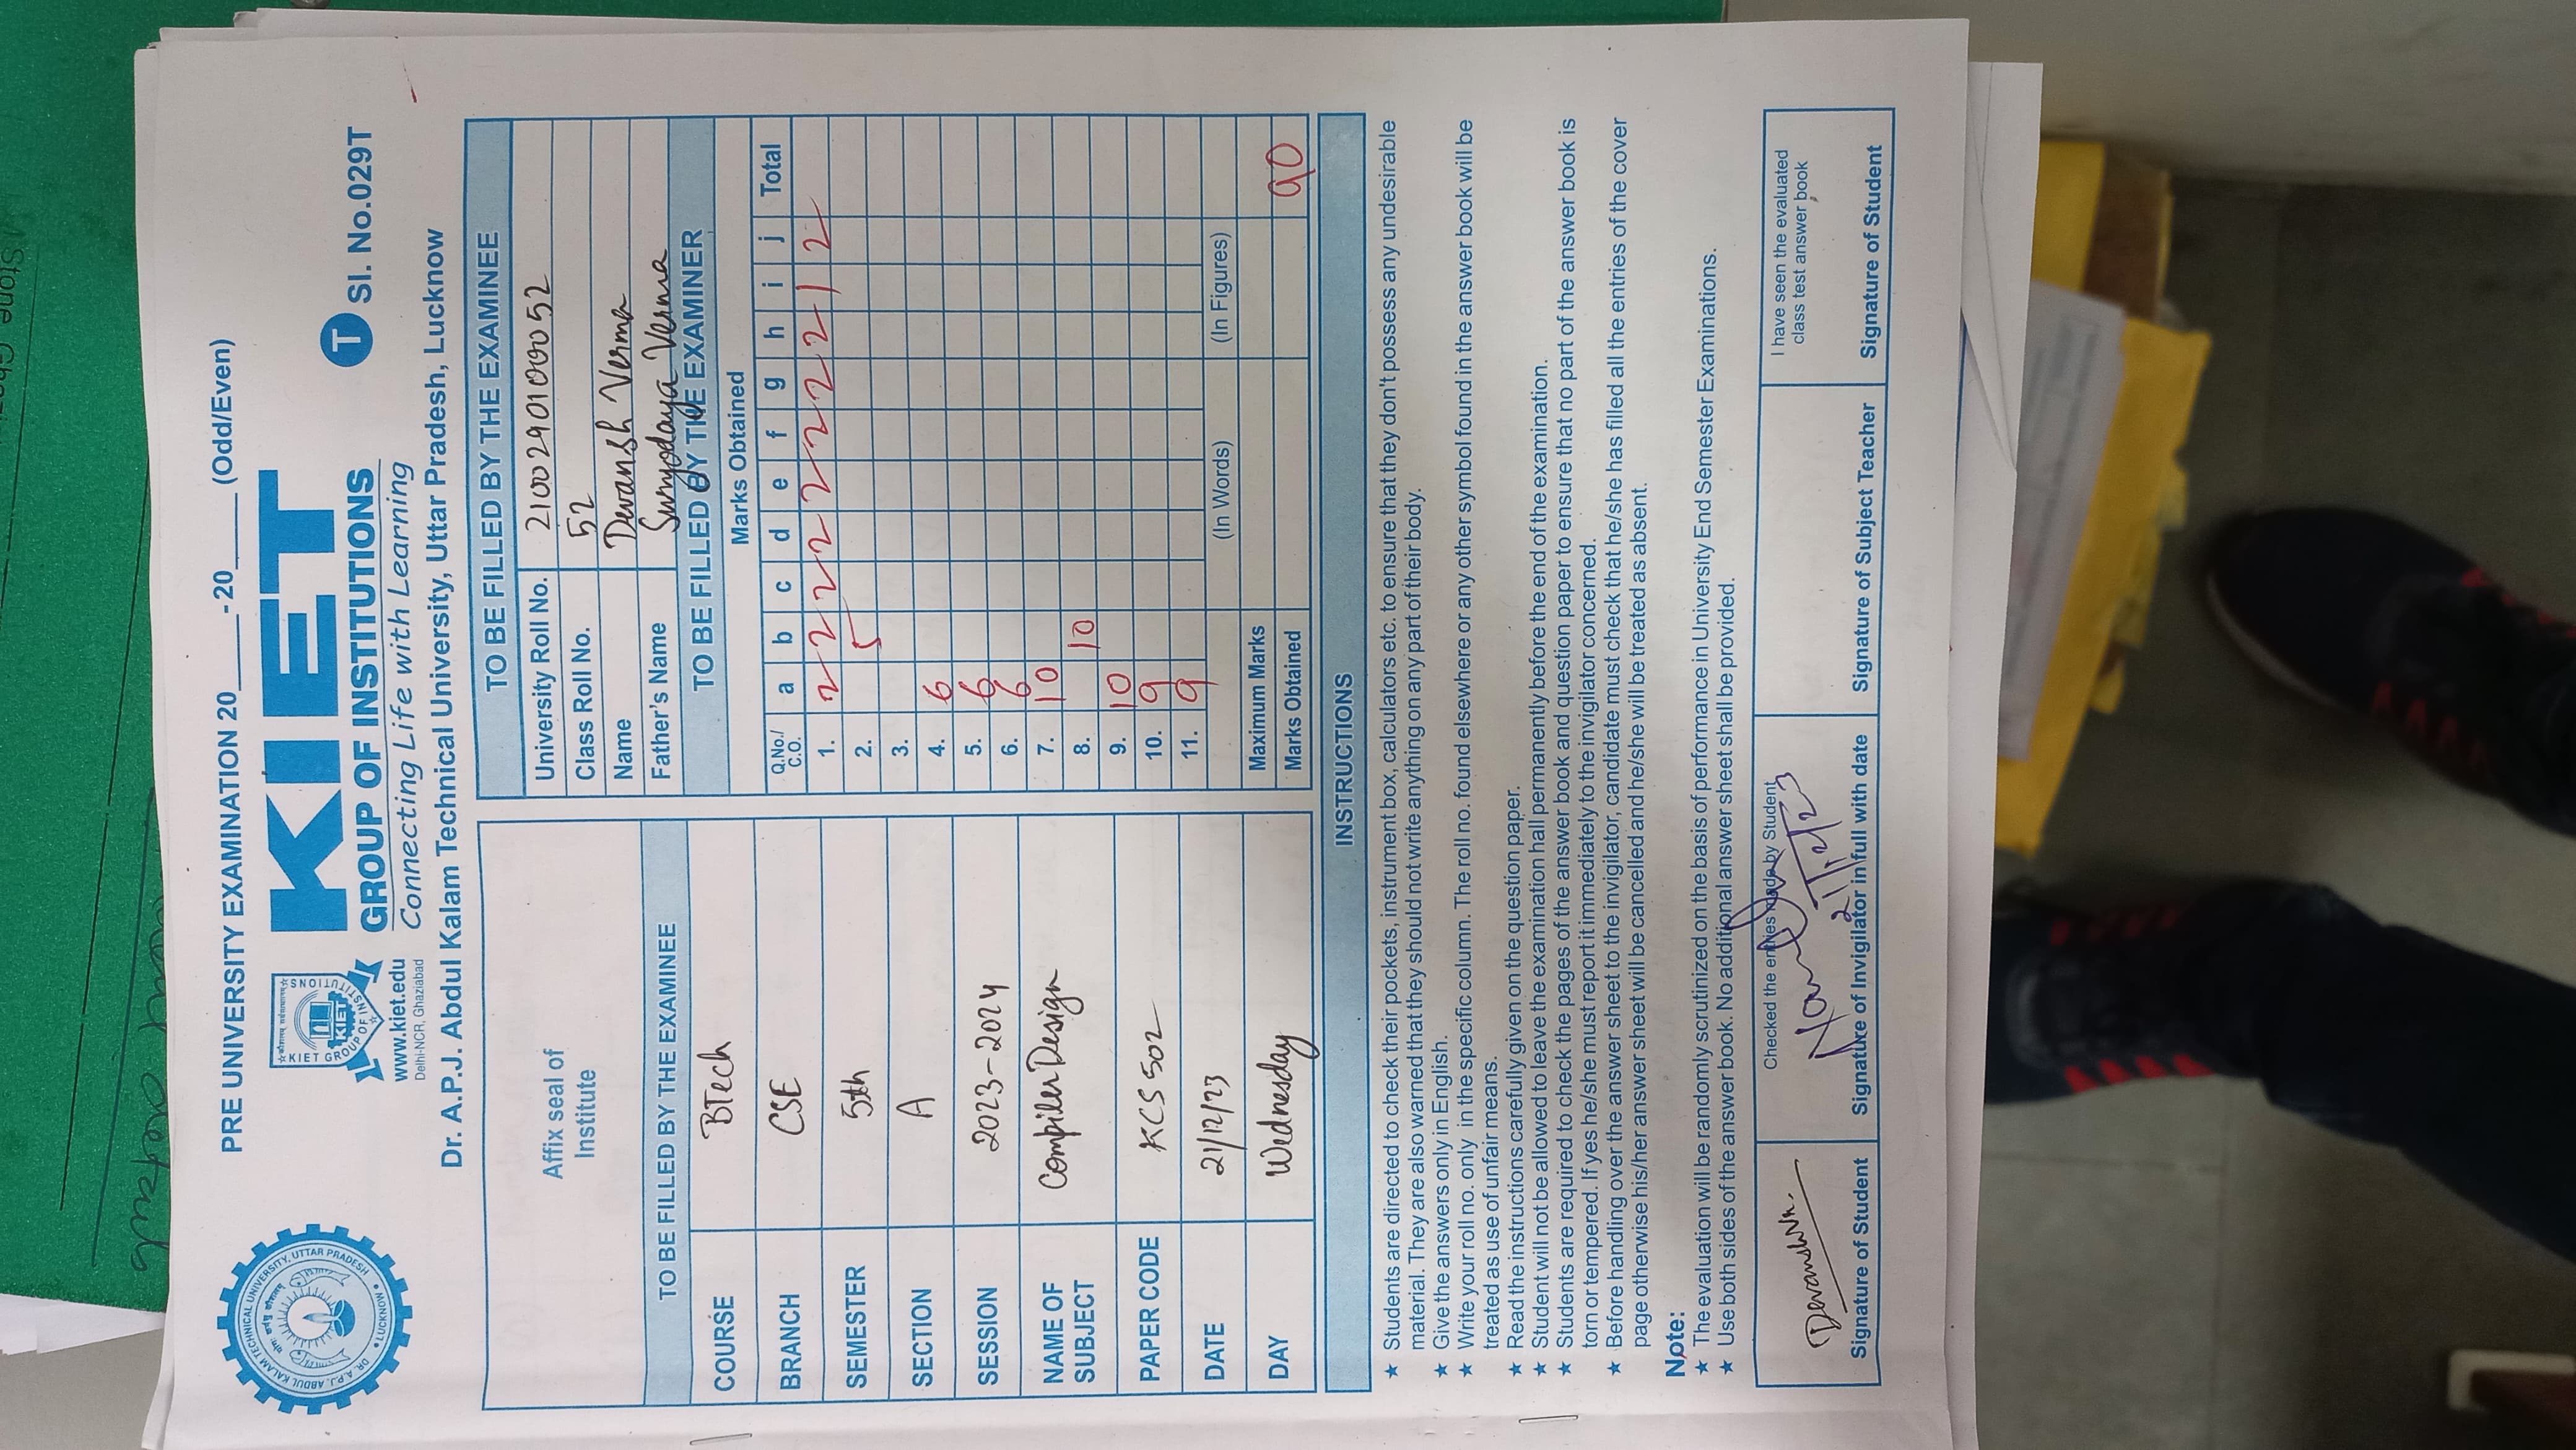 Stone Gha
PRE UNIVERSITY EXAMINATION 20_____-20_____ (Odd/Even)
DR. A.P.J. ABDUL KALAM TECHNICAL UNIVERSITY, UTTAR PRADESH
• LUCKNOW •
KIET GROUP OF INSTITUTIONS
KIET
www.kiet.edu
Delhi-NCR, Ghaziabad
KIET
GROUP OF INSTITUTIONS
Connecting Life with Learning
T Sl. No.029T
Dr. A.P.J. Abdul Kalam Technical University, Uttar Pradesh, Lucknow
Affix seal of
Institute
TO BE FILLED BY THE EXAMINEE
COURSE BTech
BRANCH CSE
SEMESTER 5th
SECTION A
SESSION 2023-2024
NAME OF SUBJECT Compiler Design
PAPER CODE KCS 502
DATE 21/12/23
DAY Wednesday
TO BE FILLED BY THE EXAMINEE
University Roll No. 2100290100052
Class Roll No. 52
Name Devansh Verma
Father's Name Suryodaya Verma
TO BE FILLED BY THE EXAMINER
Marks Obtained
Q.No./ C.O. a b c d e f g h i j Total
1. 2 2 2 2 2 2 2 2 1 2
2. 5
3.
4. 6
5. 6
6. 6
7. 10
8. 10
9. 10
10. 9
11. 9
(In Words) (In Figures)
Maximum Marks
Marks Obtained 90
INSTRUCTIONS
★ Students are directed to check their pockets, instrument box, calculators etc. to ensure that they don't possess any undesirable
material. They are also warned that they should not write anything on any part of their body.
★ Give the answers only in English.
★ Write your roll no. only in the specific column. The roll no. found elsewhere or any other symbol found in the answer book will be
treated as use of unfair means.
★ Read the instructions carefully given on the question paper.
★ Student will not be allowed to leave the examination hall permanently before the end of the examination.
★ Students are required to check the pages of the answer book and question paper to ensure that no part of the answer book is
torn or tempered. If yes he/she must report it immediately to the invigilator concerned.
★ Before handling over the answer sheet to the invigilator, candidate must check that he/she has filled all the entries of the cover
page otherwise his/her answer sheet will be cancelled and he/she will be treated as absent.
Note:
★ The evaluation will be randomly scrutinized on the basis of performance in University End Semester Examinations.
★ Use both sides of the answer book. No additional answer sheet shall be provided.
Devansh Vr.
Signature of Student
Checked the entries made by Student
21/12/23
Signature of Invigilator in full with date
Signature of Subject Teacher
I have seen the evaluated
class test answer book
Signature of Student